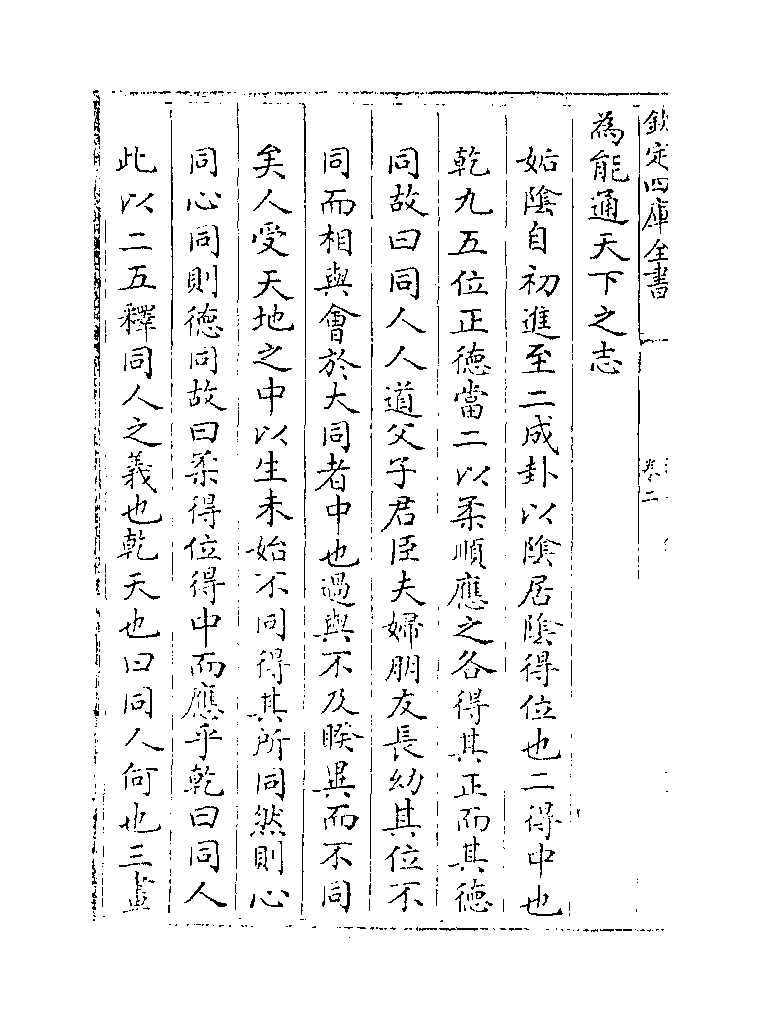 欽定四庫全書
卷二
為能通天下之志
姤陰自初進至二成卦以陰居陰得位也二得中也
乾九五位正德當二以柔順應之各得其正而其德
同故曰同人人道父子君臣夫婦朋友長幼其位不
同而相與㑹於大同者中也過與不及睽異而不同
矣人受天地之中以生未始不同得其所同然則心
同心同則德同故曰柔得位得中而應乎乾曰同人
此以二五釋同人之義也乾天也曰同人何也三畫